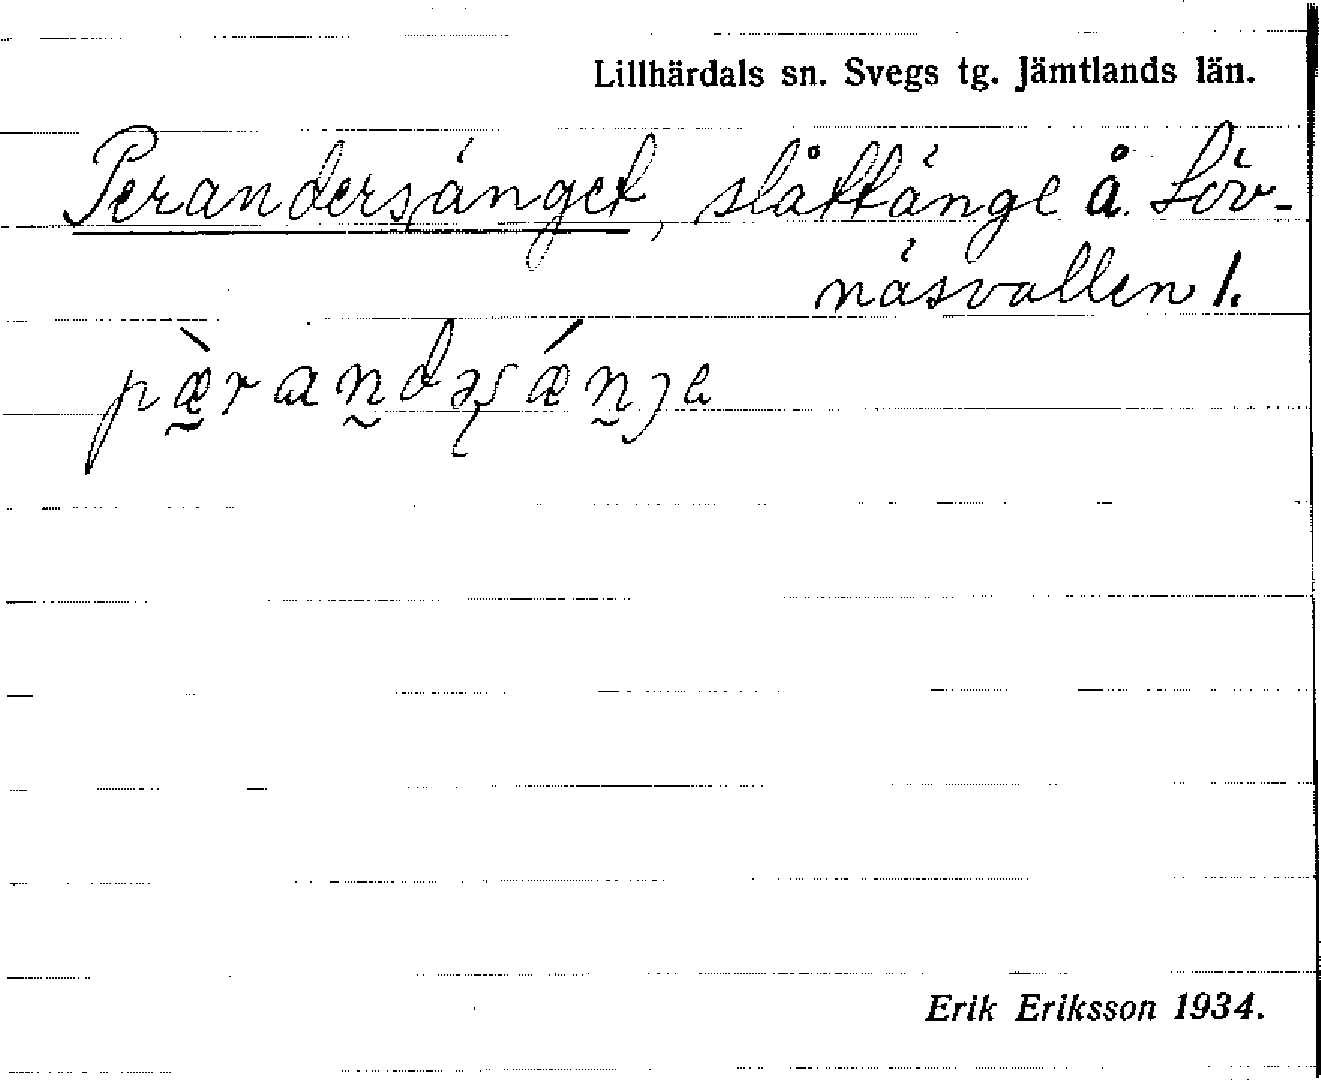 Lillhärdals sn. Svegs tg. Jämtlands län.
Perandersänget, slåttänge å Löv-
näsvallen 1.
pæ̀randəʂǽnɟe
Erik Eriksson 1934.